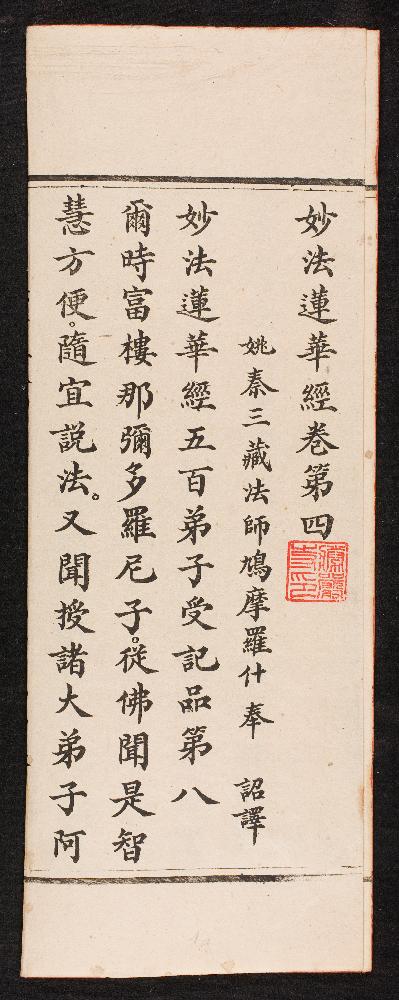 妙法蓮華經卷第四
姚秦三藏法師鳩摩羅什奉 詔譯
妙法蓮華經五百弟子受記品第八
爾時富樓那彌多羅尼子。從佛聞是智
慧方便。隨宜説法。又聞授諸大弟子阿